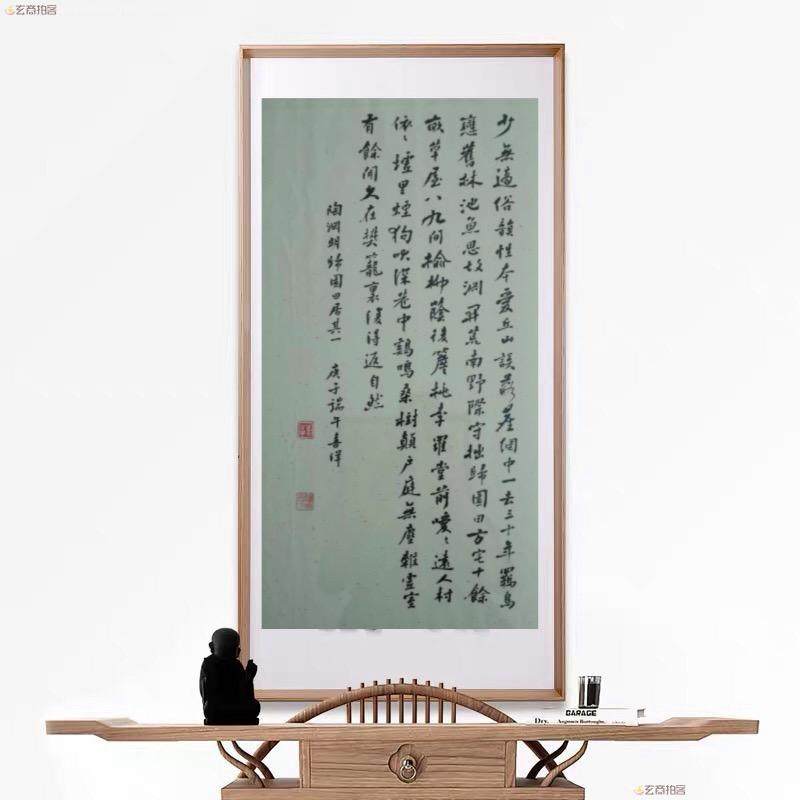 玄商拍客
少無適俗韻性本愛丘山誤落塵網中一去三十年羈鳥
戀舊林池魚思故淵開荒南野際守拙歸園田方宅十餘
畝草屋八九間榆柳蔭後簷桃李羅堂前曖〻遠人村
依〻墟里煙狗吠深巷中鷄鳴桑樹顛戶庭無塵雜虛室
有餘閒久在樊籠裏復得返自然
陶淵明歸園田居其一 庚子端午喜
GARAGE
Dry. Augusten Burroughs
玄商拍客